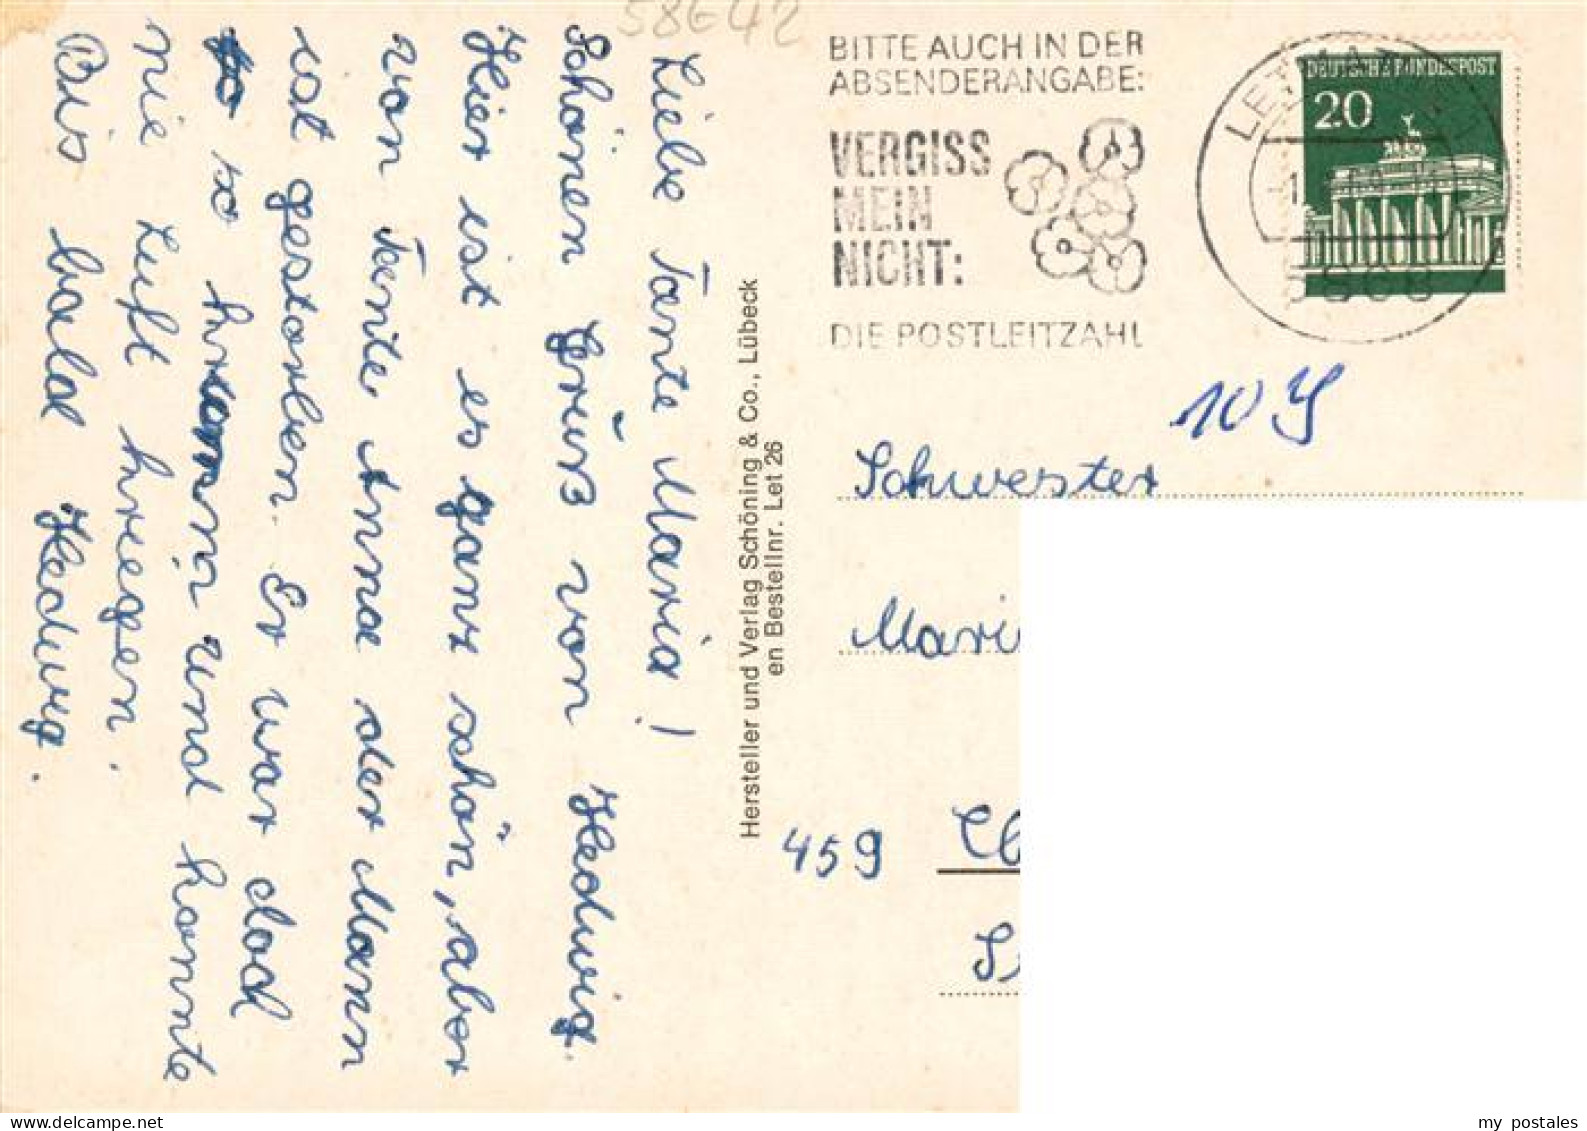 58642
BITTE AUCH IN DER
ABSENDERANGABE:
VERGISS
MEIN
NICHT:
DIE POSTLEITZAHL
DEUTSCHE BUNDESPOST
20
5868
10 Y
Liebe Tante Maria!
Schönen Grüß von Hedwig.
Hier ist es ganz schön, aber
von Tante Anna der Mann
ist gestorben. Er war dod
so krank und konnte
nie Luft kriegen.
Bis bald Hedwig.
Hersteller und Verlag Schöning & Co., Lübeck
en Bestellnr. Let 26
Schwester
Mari
459
my postales